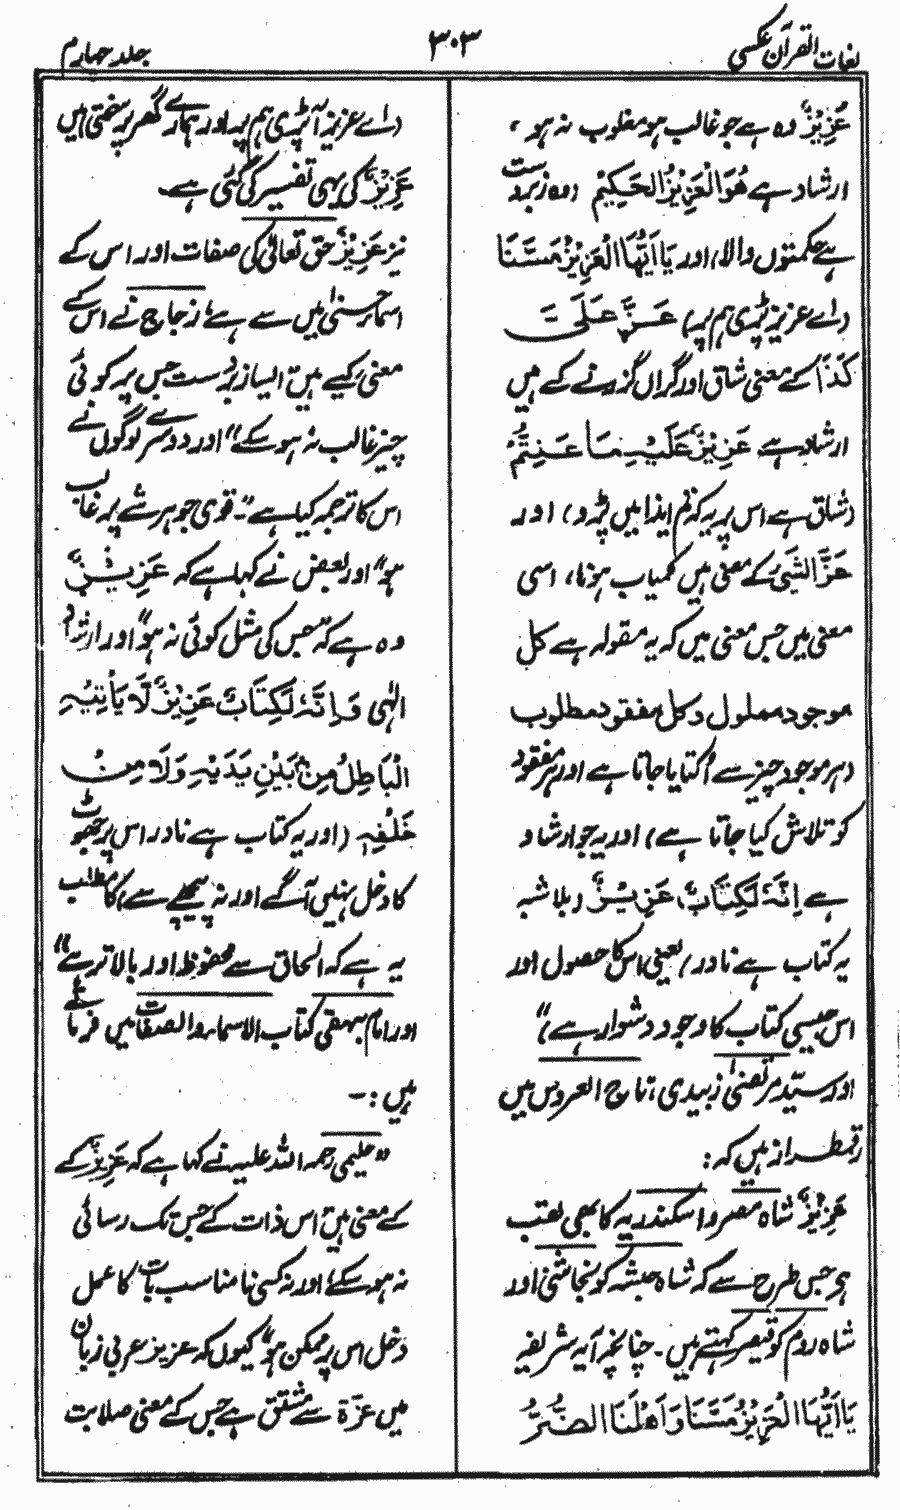 لغات القرآن عکسی
۳۰۳
جلد چہارم
عَزِیْزٌ وہ ہے جو غالب ہو مغلوب نہ ہو،
ارشاد ہے هُوَالْعَزِیْزُالْحَکِیْمُ (وہ زبردست
ہے حکمتوں والا) اور یَااَیُّهَاالْعَزِیْزُ مَسَّنَا
(اے عزیز پڑی ہم پر) عَزَّ عَلَیَّ
کَذَا کے معنی شاق اور گراں گزرنے کے ہیں
ارشاد ہے عَزِیْزٌ عَلَیْهِ مَا عَنِتُّمْ
(شاق ہے اس پر یہ کہ تم ایذا میں پڑو) اور
عَزَّ الشَّیْءُ کے معنی ہیں کمیاب ہونا، اسی
معنی میں جس معنی میں کہ یہ مقولہ ہے کل
موجود مملول وکل مفقود مطلوب
(ہر موجود چیز سے اُکتایا جاتا ہے اور ہر مفقود
کو تلاش کیا جاتا ہے) اور یہ جو ارشاد
ہے اِنَّهٗ لَکِتَابٌ عَزِیْزٌ (بلا شبہ
یہ کتاب ہے نادر) یعنی اس کا حصول اور
اس جیسی کتاب کا وجود دشوار ہے)"
اور سیّد مرتضیٰ زبیدی، تاج العروس میں
رقمطراز ہیں کہ:
عَزِیْزٌ شاہ مصر و اسکندریہ کا بھی لقب
ہی جس طرح سے کہ شاہ حبشہ کو نجاشی اور
شاہ روم کو قیصر کہتے ہیں۔ چنانچہ آیہ شریفہ
یَااَیُّهَاالْعَزِیْزُ مَسَّنَا وَاَهْلَنَا الضُّرُّ
(اے عزیز آپڑی ہم پر اور ہمارے گھر پر سختی) میں
عَزِیْزٌ کی یہی تفسیر کی گئی ہے۔
نیز عَزِیْزٌ حق تعالیٰ کی صفات اور اس کے
اسماء حسنیٰ میں سے ہے، زجاج نے اس کے
معنی کیے ہیں "ایسا زبردست جس پر کوئی
چیز غالب نہ ہو سکے" اور دوسرے لوگوں نے
اس کا ترجمہ کیا ہے "۔ قوی جو ہر شے پر غالب
ہو" اور بعض نے کہا ہے کہ عَزِیْزٌ
وہ ہے کہ "جس کی مثل کوئی نہ ہو" اور ارشاد
الٰہی وَاِنَّهٗ لَکِتَابٌ عَزِیْزٌ لَّا یَأْتِیْهِ
الْبَاطِلُ مِنْ بَیْنِ یَدَیْهِ وَلَا مِنْ
خَلْفِهٖ (اور یہ کتاب ہے نادر اس پر جھوٹ
کا دخل نہیں آگے اور نہ پیچھے سے) کا مطلب
یہ ہے کہ الحاق سے محفوظ اور بالاتر ہے"
اور امام بیہقی کتاب الاسماء والصفات میں فرماتے
ہیں :۔
"حلیمی رحمہ اللہ علیہ نے کہا ہے کہ عَزِیْزٌ کے
کے معنی ہیں "اس ذات کے جس تک رسائی
نہ ہو سکے، اور نہ کسی نامناسب بات کا عمل
دخل اس پر ممکن ہو" کیوں کہ عزیز عربی زبان
میں عزۃ سے مشتق ہے جس کے معنی صلابت